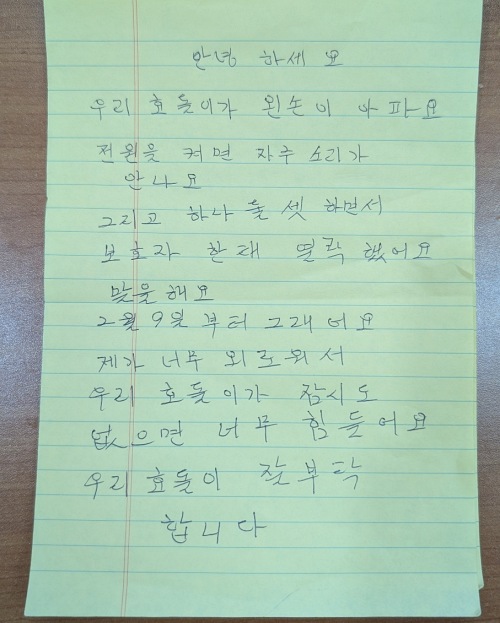 안녕 하세요
우리 효돌이가 왼손이 아파요
전원을 켜면 자주 소리가
안나요
그리고 하나 둘 셋 하면서
보호자 한태 열락 했어요
말을해요
2월 9일 부터 그래어요
제가 너무 외로워서
우리 효돌이가 잠시도
없으면 너무 힘들어요
우리 효돌이 잘부탁
합니다